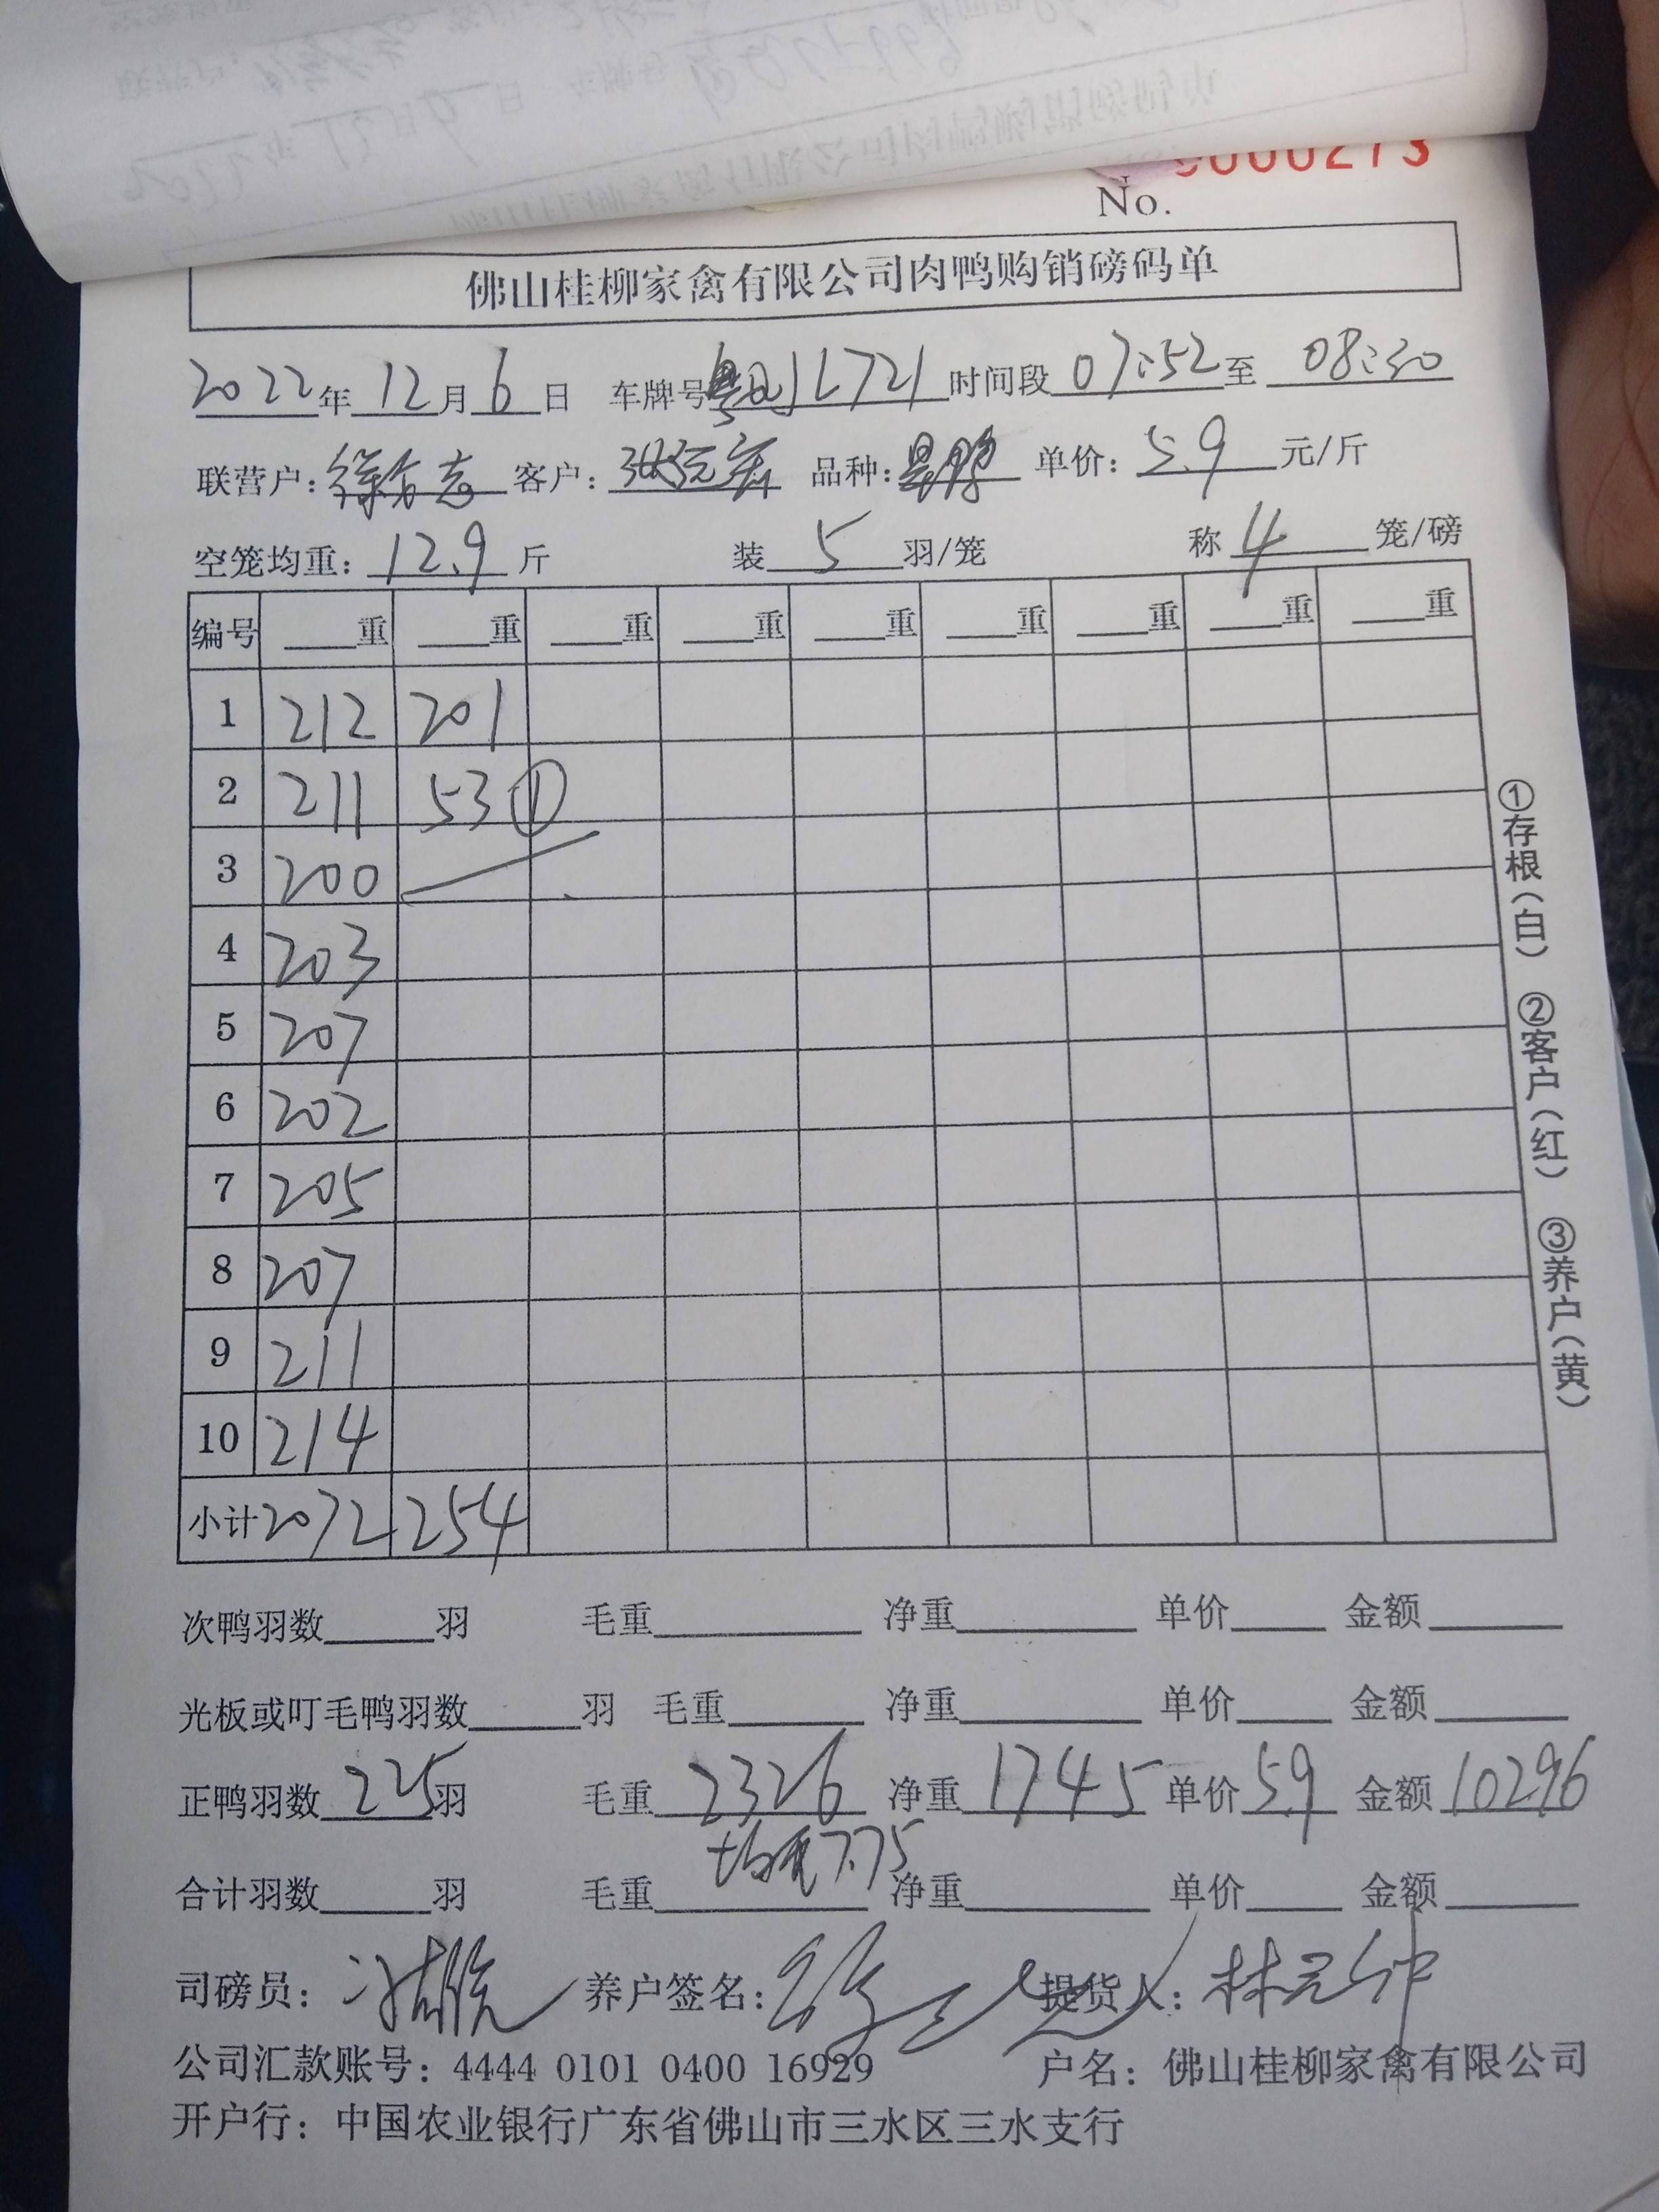 No. 0000273
佛山桂柳家禽有限公司肉鸭购销磅码单
2022年12月6日 车牌号粤JL721时间段07:52至08:30
联营户:徐合志 客户: 品种: 单价:5.9元/斤
空笼均重:12.9斤 装5羽/笼 称4笼/磅
编号 重 重 重 重 重 重 重 重 重
1 212 201
2 211 53①
3 200
4 203
5 207
6 202
7 205
8 207
9 211
10 214
小计 2072 254
①存根(白) ②客户(红) ③养户(黄)
次鸭羽数 羽 毛重 净重 单价 金额
光板或叮毛鸭羽数 羽 毛重 净重 单价 金额
正鸭羽数225羽 毛重2326 净重1745 单价5.9 金额10296
均重7.75
合计羽数 羽 毛重 净重 单价 金额
司磅员: 养户签名: 提货人:
公司汇款账号:4444 0101 0400 16929 户名:佛山桂柳家禽有限公司
开户行:中国农业银行广东省佛山市三水区三水支行